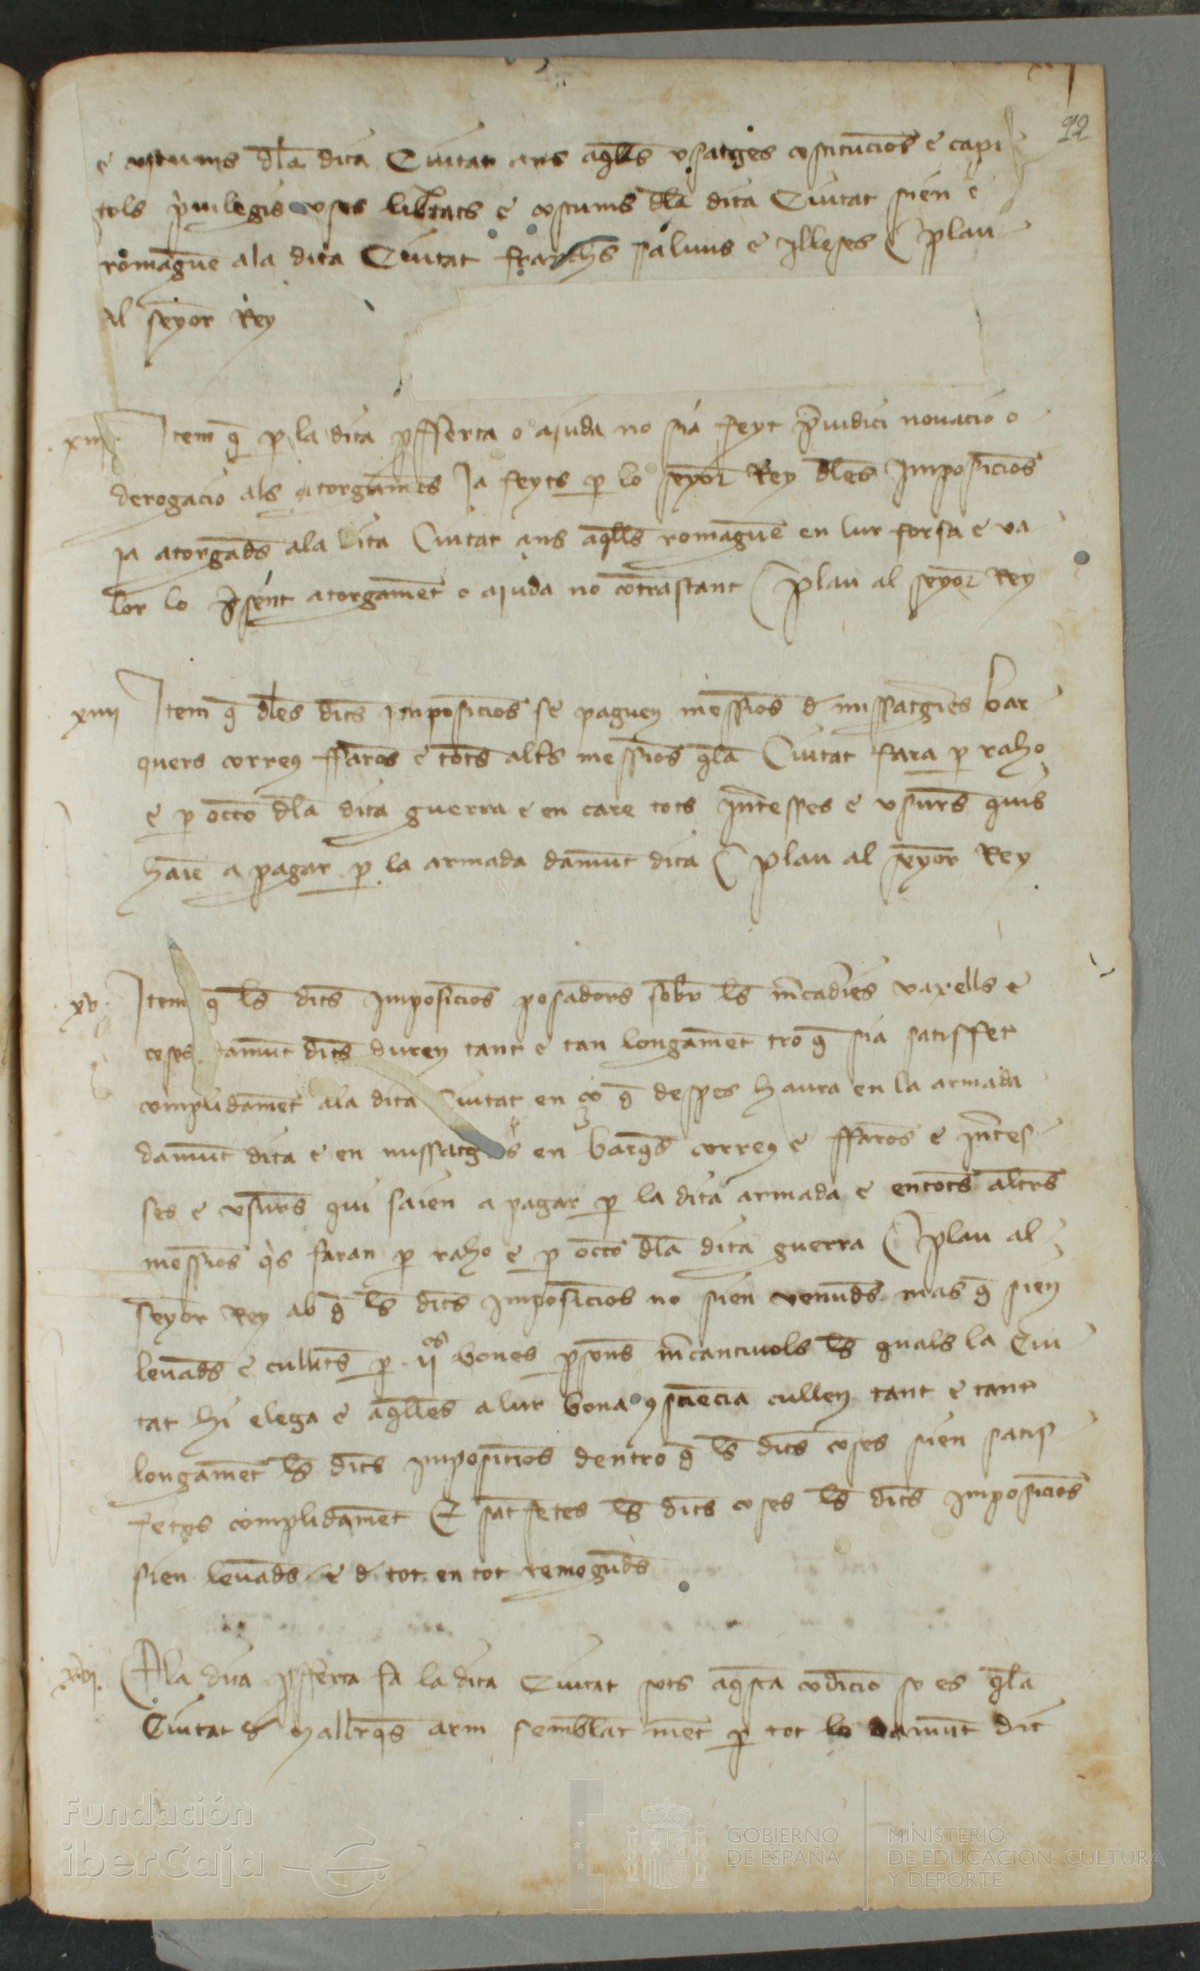 22
e custums dla dita Ciutat ans aqlls vsatges costitucios e capi
tols puilegis vses libtats e custums dla dita Ciutat sien e
romaguen ala dita Ciutat franchs saluus e illeses Plau
al senyor Rey
xiii Item q p la dita pfferta o aiuda no sia feyt piudici nouacio o
derogacio als atorgamets ja feyts p lo senyor Rey dles imposicios
ja atorgads ala dita Ciutat ans aqlls romaguen en lur forsa e va
lor lo psent atorgamet o aiuda no cotrastant Plau al senyor Rey
xiiii Item q dles dits imposicios se paguen messios d missatgers bar
quers correus ffaros e tots altrs messios q la Ciutat fara p raho
e p occo dla dita guerra e en care tots intesses e vsurs quis
haien a pagar p la armada damut dita Plau al senyor Rey
xv Item q ls dits imposicios posadors sobr ls mcaderies vaxells e
coses damut dits duren tant e tan longamet tro q sia satisffet
complidamet ala dita Ciutat en ço q despes haura en la armada
damut dita e en missatgers en barqs correus e ffaros e intes
ses e vsurs qui saien a pagar p la dita armada e en tots altrs
messios qs faran p raho e p occo dla dita guerra Plau al
senyor Rey ab q ls dits imposicios no sien venuds mas q sien
leuads e cullits p ii es bones psons mcantiuols ls quals la Ciu
tat hi elega e aqlles a lur bona csciencia cullen tant e tant
longamet ls dits imposicios dentro q ls dits coses sien satis
fetes complidamet E satfetes ls dits coses ls dits imposicios
sien leuads e d tot en tot remoguds
xvi A la dita pfferta fa la dita Ciutat sots aqsta codicio so es q la
Ciutat d mallorqs arm semblat met p tot lo damut dit
Fundación
iberCaja
GOBIERNO
DE ESPAÑA
MINISTERIO
DE EDUCACIÓN, CULTURA
Y DEPORTE